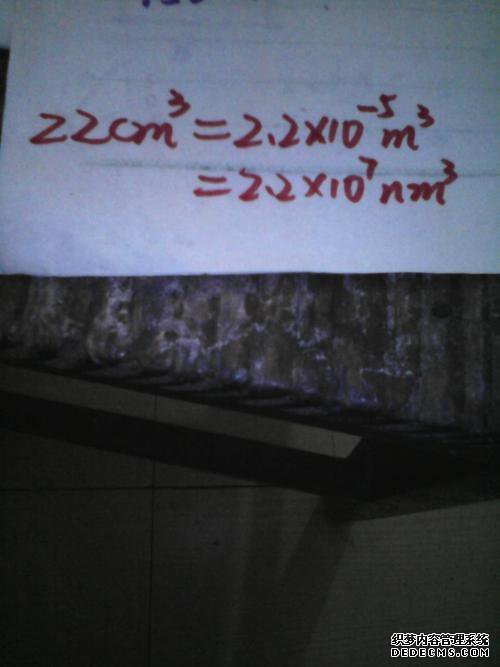 22cm³=2.2×10⁻⁵m³
=2.2×10⁷nm³
织梦内容管理系统
DEDECMS.COM